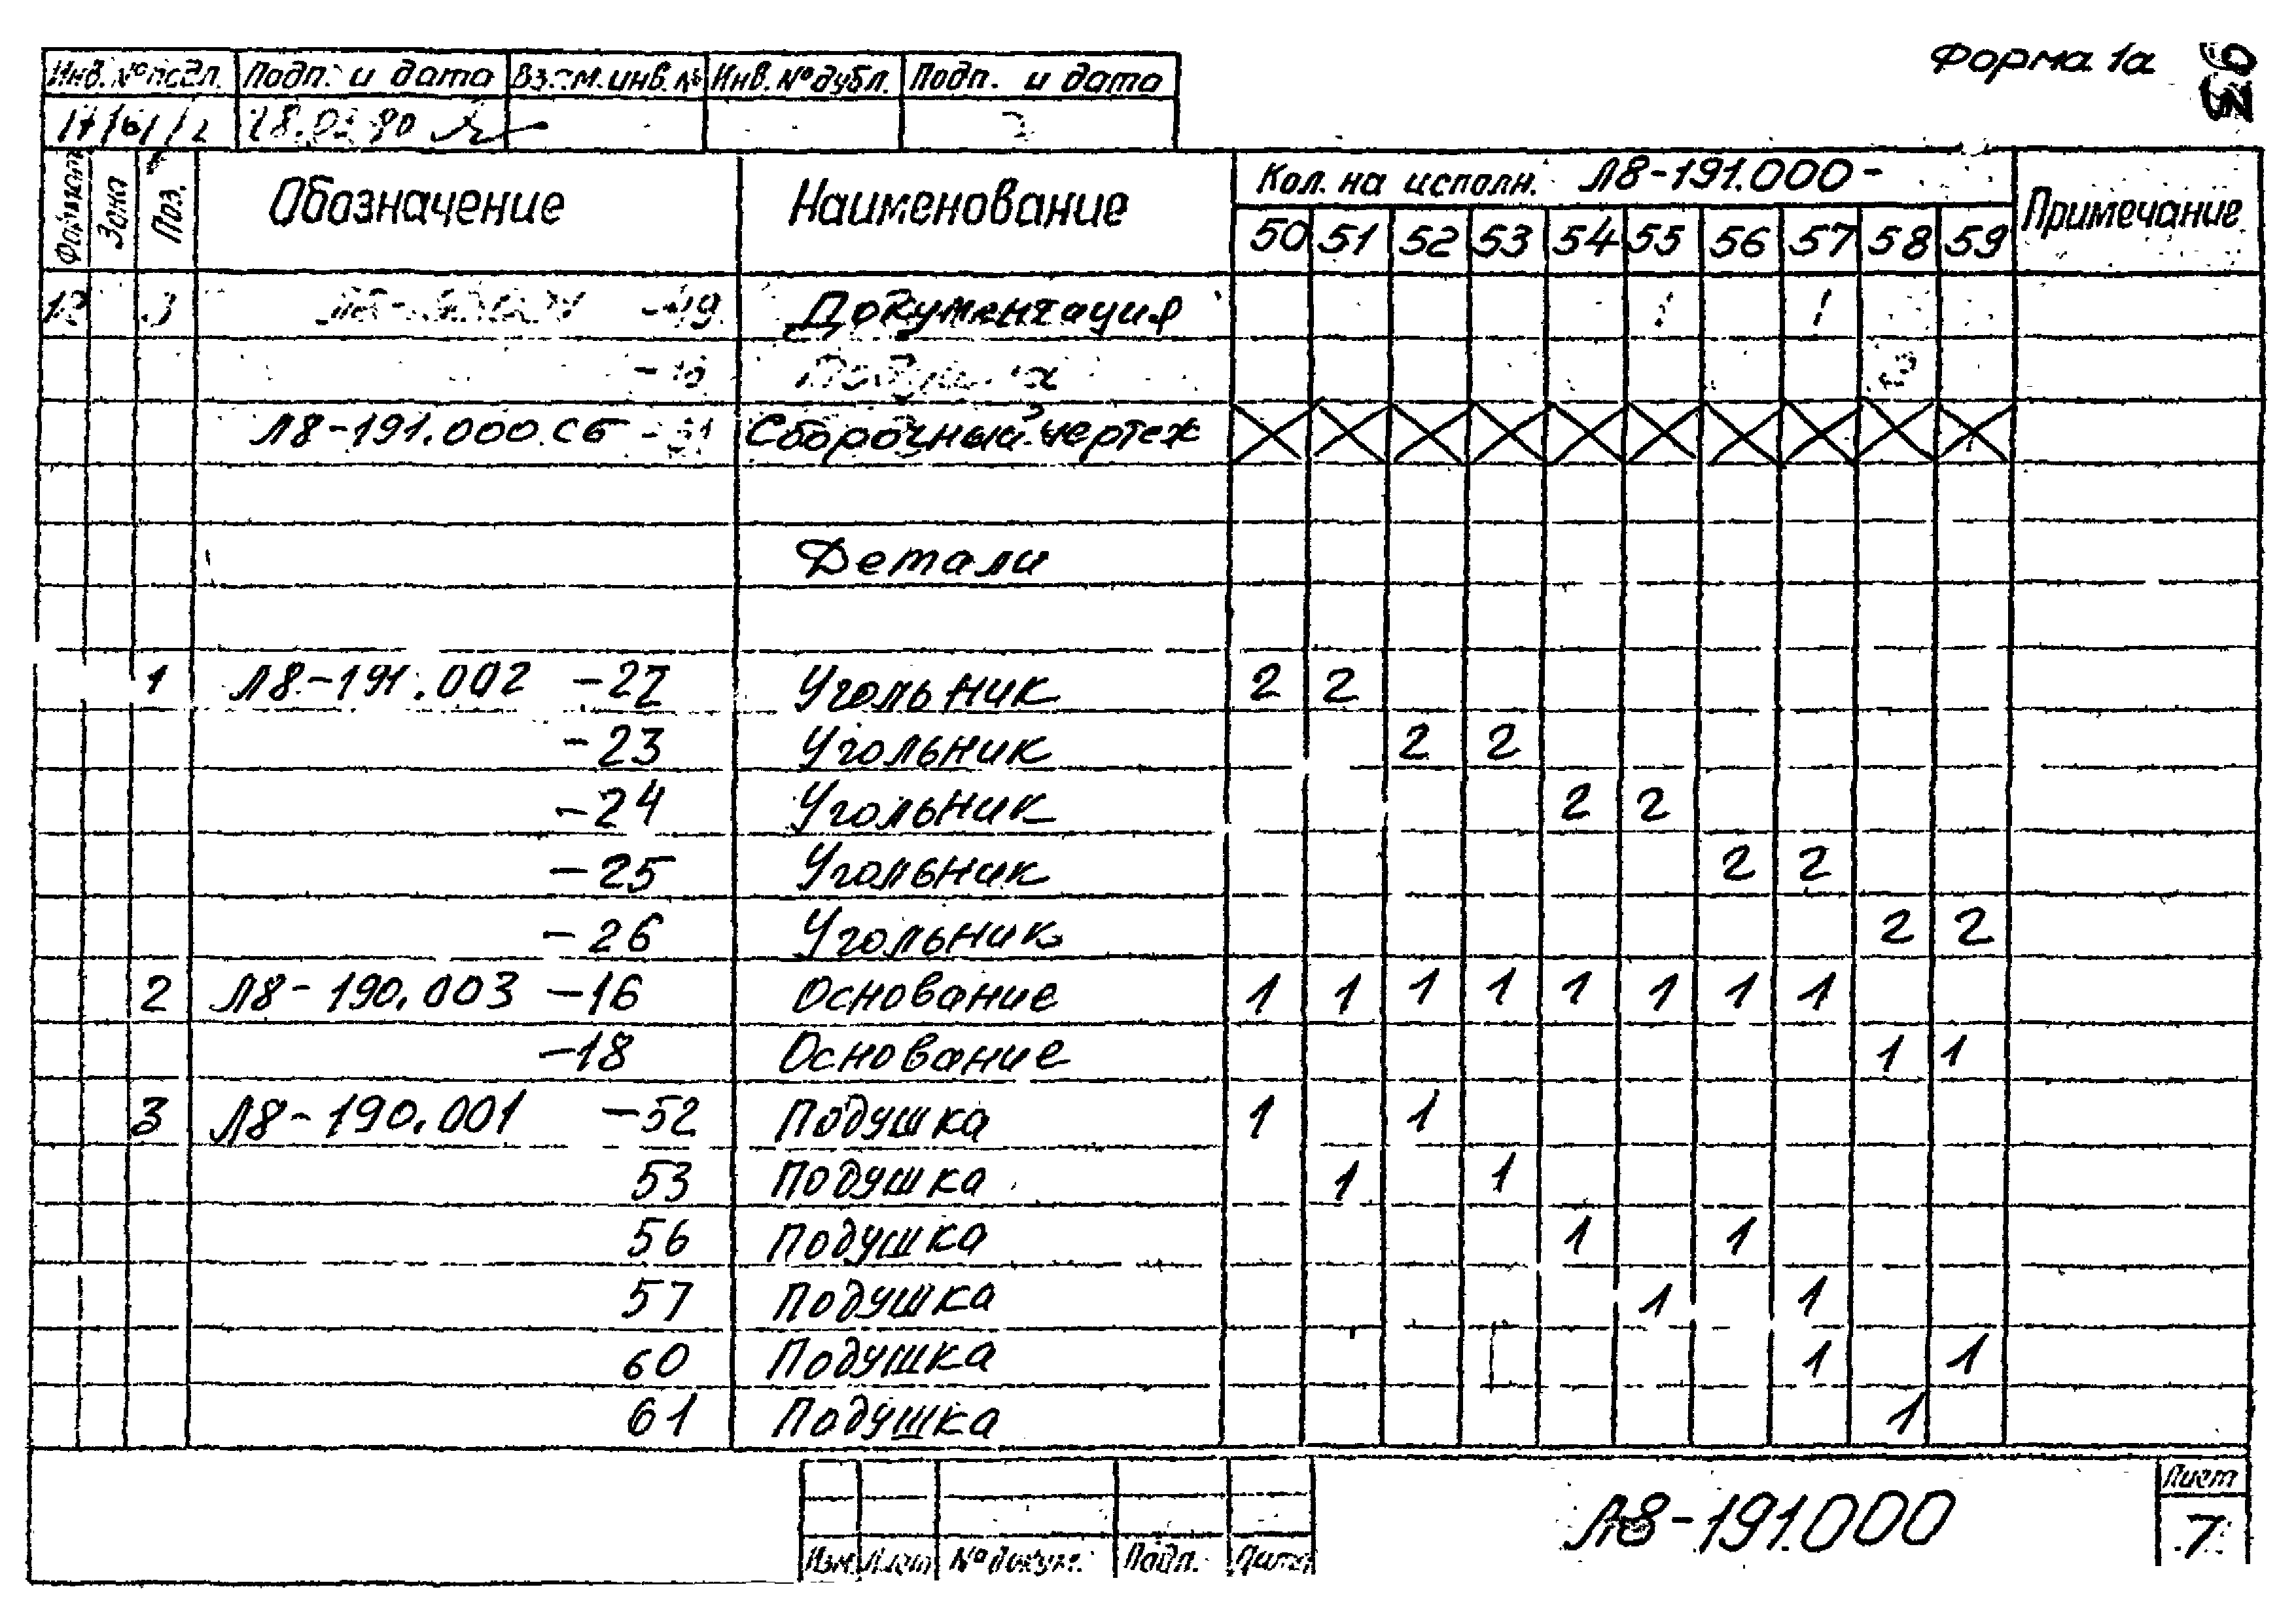 Форма 1а
Инв. № подл. Подп. и дата Взам. инв. № Инв. № дубл. Подп. и дата
Формат Зона Поз. Обозначение Наименование Кол. на исполн. Л8-191.000- Примечание
50 51 52 53 54 55 56 57 58 59
Документация
Л8-191.000.СБ Сборочный чертеж
Детали
1 Л8-191.002 -22 Угольник 2 2
-23 Угольник 2 2
-24 Угольник 2 2
-25 Угольник 2 2
-26 Угольник 2 2
2 Л8-190.003 -16 Основание 1 1 1 1 1 1 1 1
-18 Основание 1 1
3 Л8-190.001 -52 Подушка 1 1
53 Подушка 1 1
56 Подушка 1 1
57 Подушка 1 1
60 Подушка 1 1
61 Подушка 1
Изм. Лист № докум. Подп. Дата
Л8-191.000
Лист
7